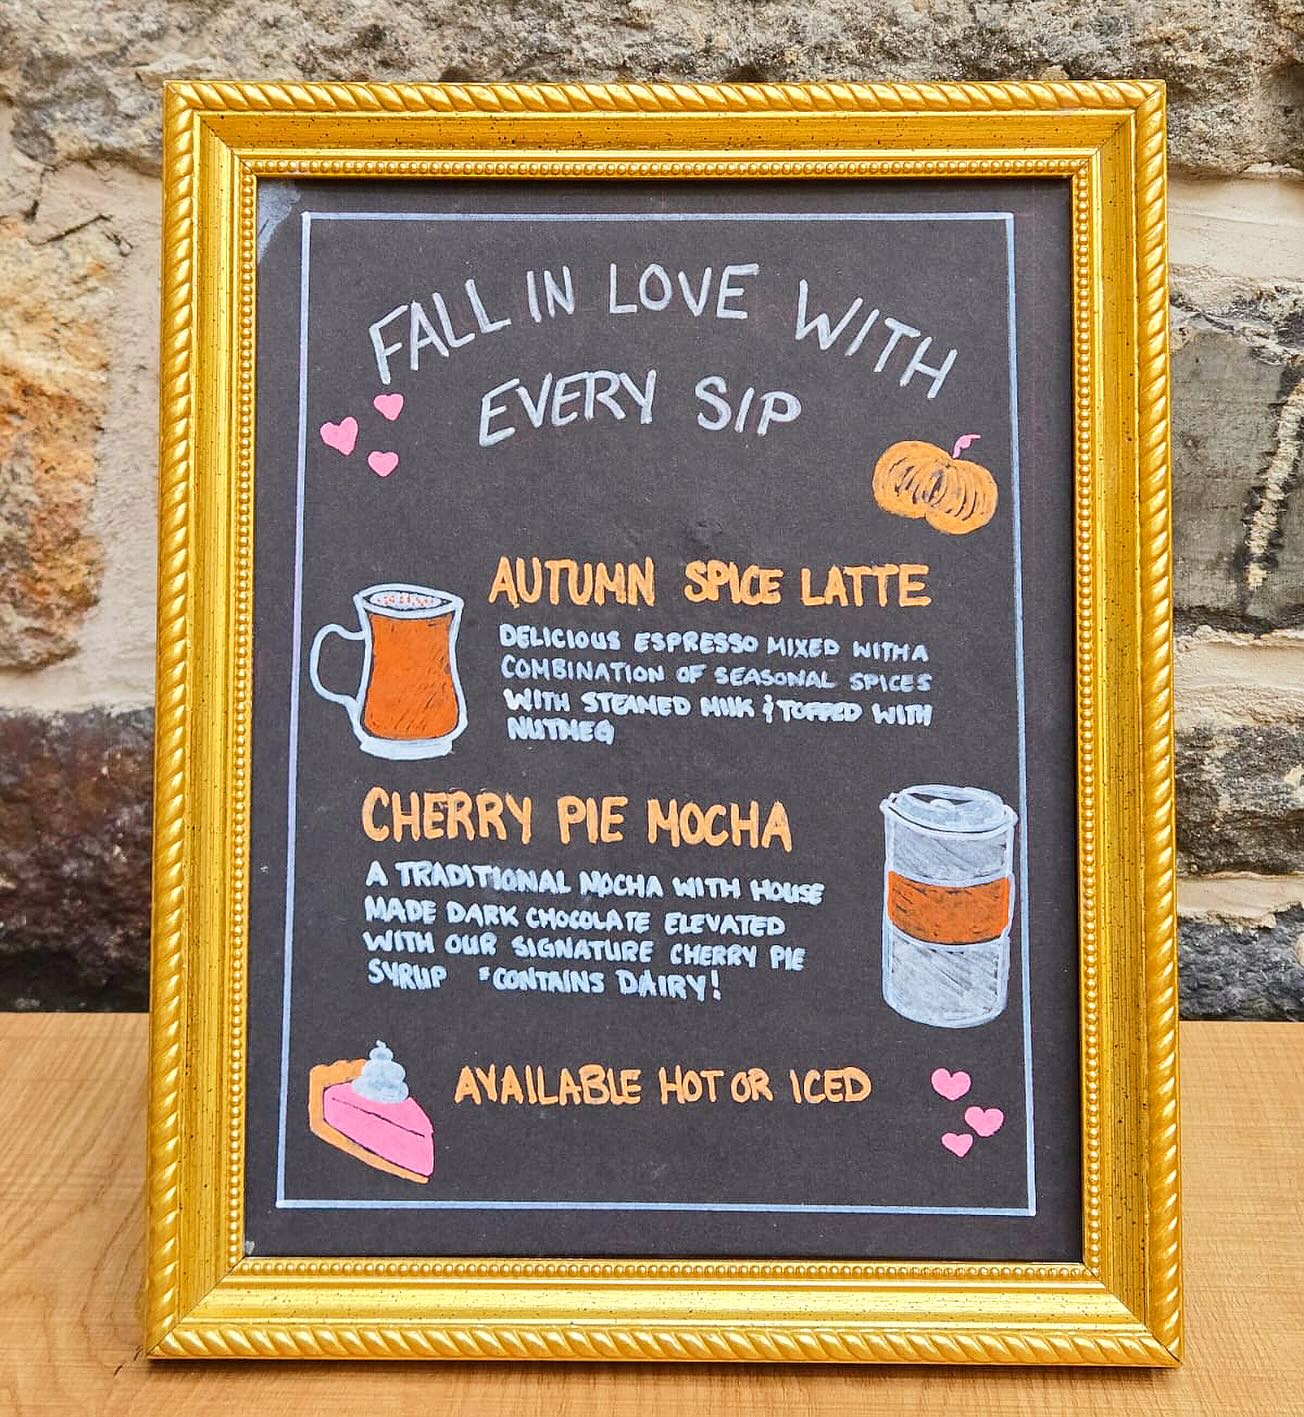 FALL IN LOVE WITH
EVERY SIP
AUTUMN SPICE LATTE
DELICIOUS ESPRESSO MIXED WITH A
COMBINATION OF SEASONAL SPICES
WITH STEAMED MILK & TOPPED WITH
NUTMEG
CHERRY PIE MOCHA
A TRADITIONAL MOCHA WITH HOUSE
MADE DARK CHOCOLATE ELEVATED
WITH OUR SIGNATURE CHERRY PIE
SYRUP *CONTAINS DAIRY!
AVAILABLE HOT OR ICED